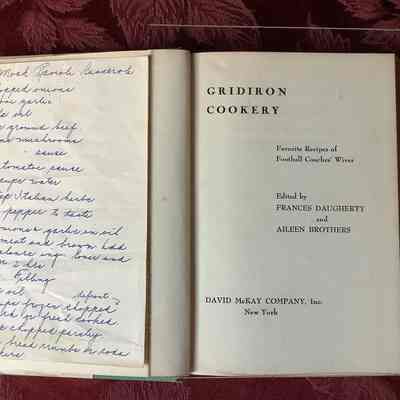 Mock Ravioli Casserole
pped onions
garlic
oil
ground beef
mushrooms
sauce
tomatoe sauce
water
Italian herbs
pepper to taste
onions & garlic in oil
meat and brown Add
cover and
2 hrs
Filling
oil
defrost
frozen chopped
or fresh cooked
chopped parsley
bread crumbs or soda
GRIDIRON
COOKERY
Favorite Recipes of
Football Coaches' Wives
Edited by
FRANCES DAUGHERTY
and
AILEEN BROTHERS
DAVID McKAY COMPANY, Inc.
New York